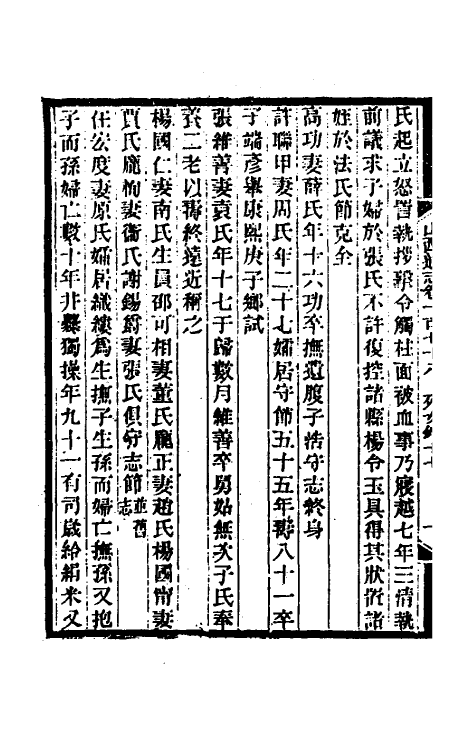 氏起立怒詈執拶辣令觸柱面被血事乃寢越七年三清執
前議求子婦於張氏不許復控諸縣楊令玉具得其狀寘諸
姪於法氏節克全
高功妻薛氏年十六功卒撫遺腹子浩守志終身
許聯甲妻周氏年二十七孀居守節五十五年壽八十一卒
子端彥舉康熙庚子鄉試
張維善妻袁氏年十七于歸數月維善卒舅姑無次子氏奉
養二老以壽終遠近稱之
楊國仁妻南氏生員邵可相妻董氏龐正妻趙氏楊國甯妻
賈氏龐恂妻衞氏謝錫爵妻張氏俱守志節並舊志
任宏度妻原氏孀居織縷為生撫子生孫而婦亡撫孫又抱
子而孫婦亡數十年井臼獨操年九十一有司歲給絹米又
山西通志卷一百七十八 列女錄十七